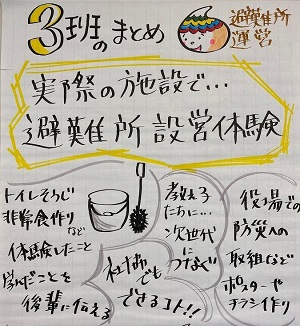 3班のまとめ
避難所
運営
実際の施設で…
避難所設営体験
トイレそうじ
非常食作り
など
体験したこと
学んだことを
後輩に伝える
教え子
たちに…
次世代に
つなぐ
社協でも
できるコト!!
役場での
防災への
取組など
ポスターや
チラシ作り